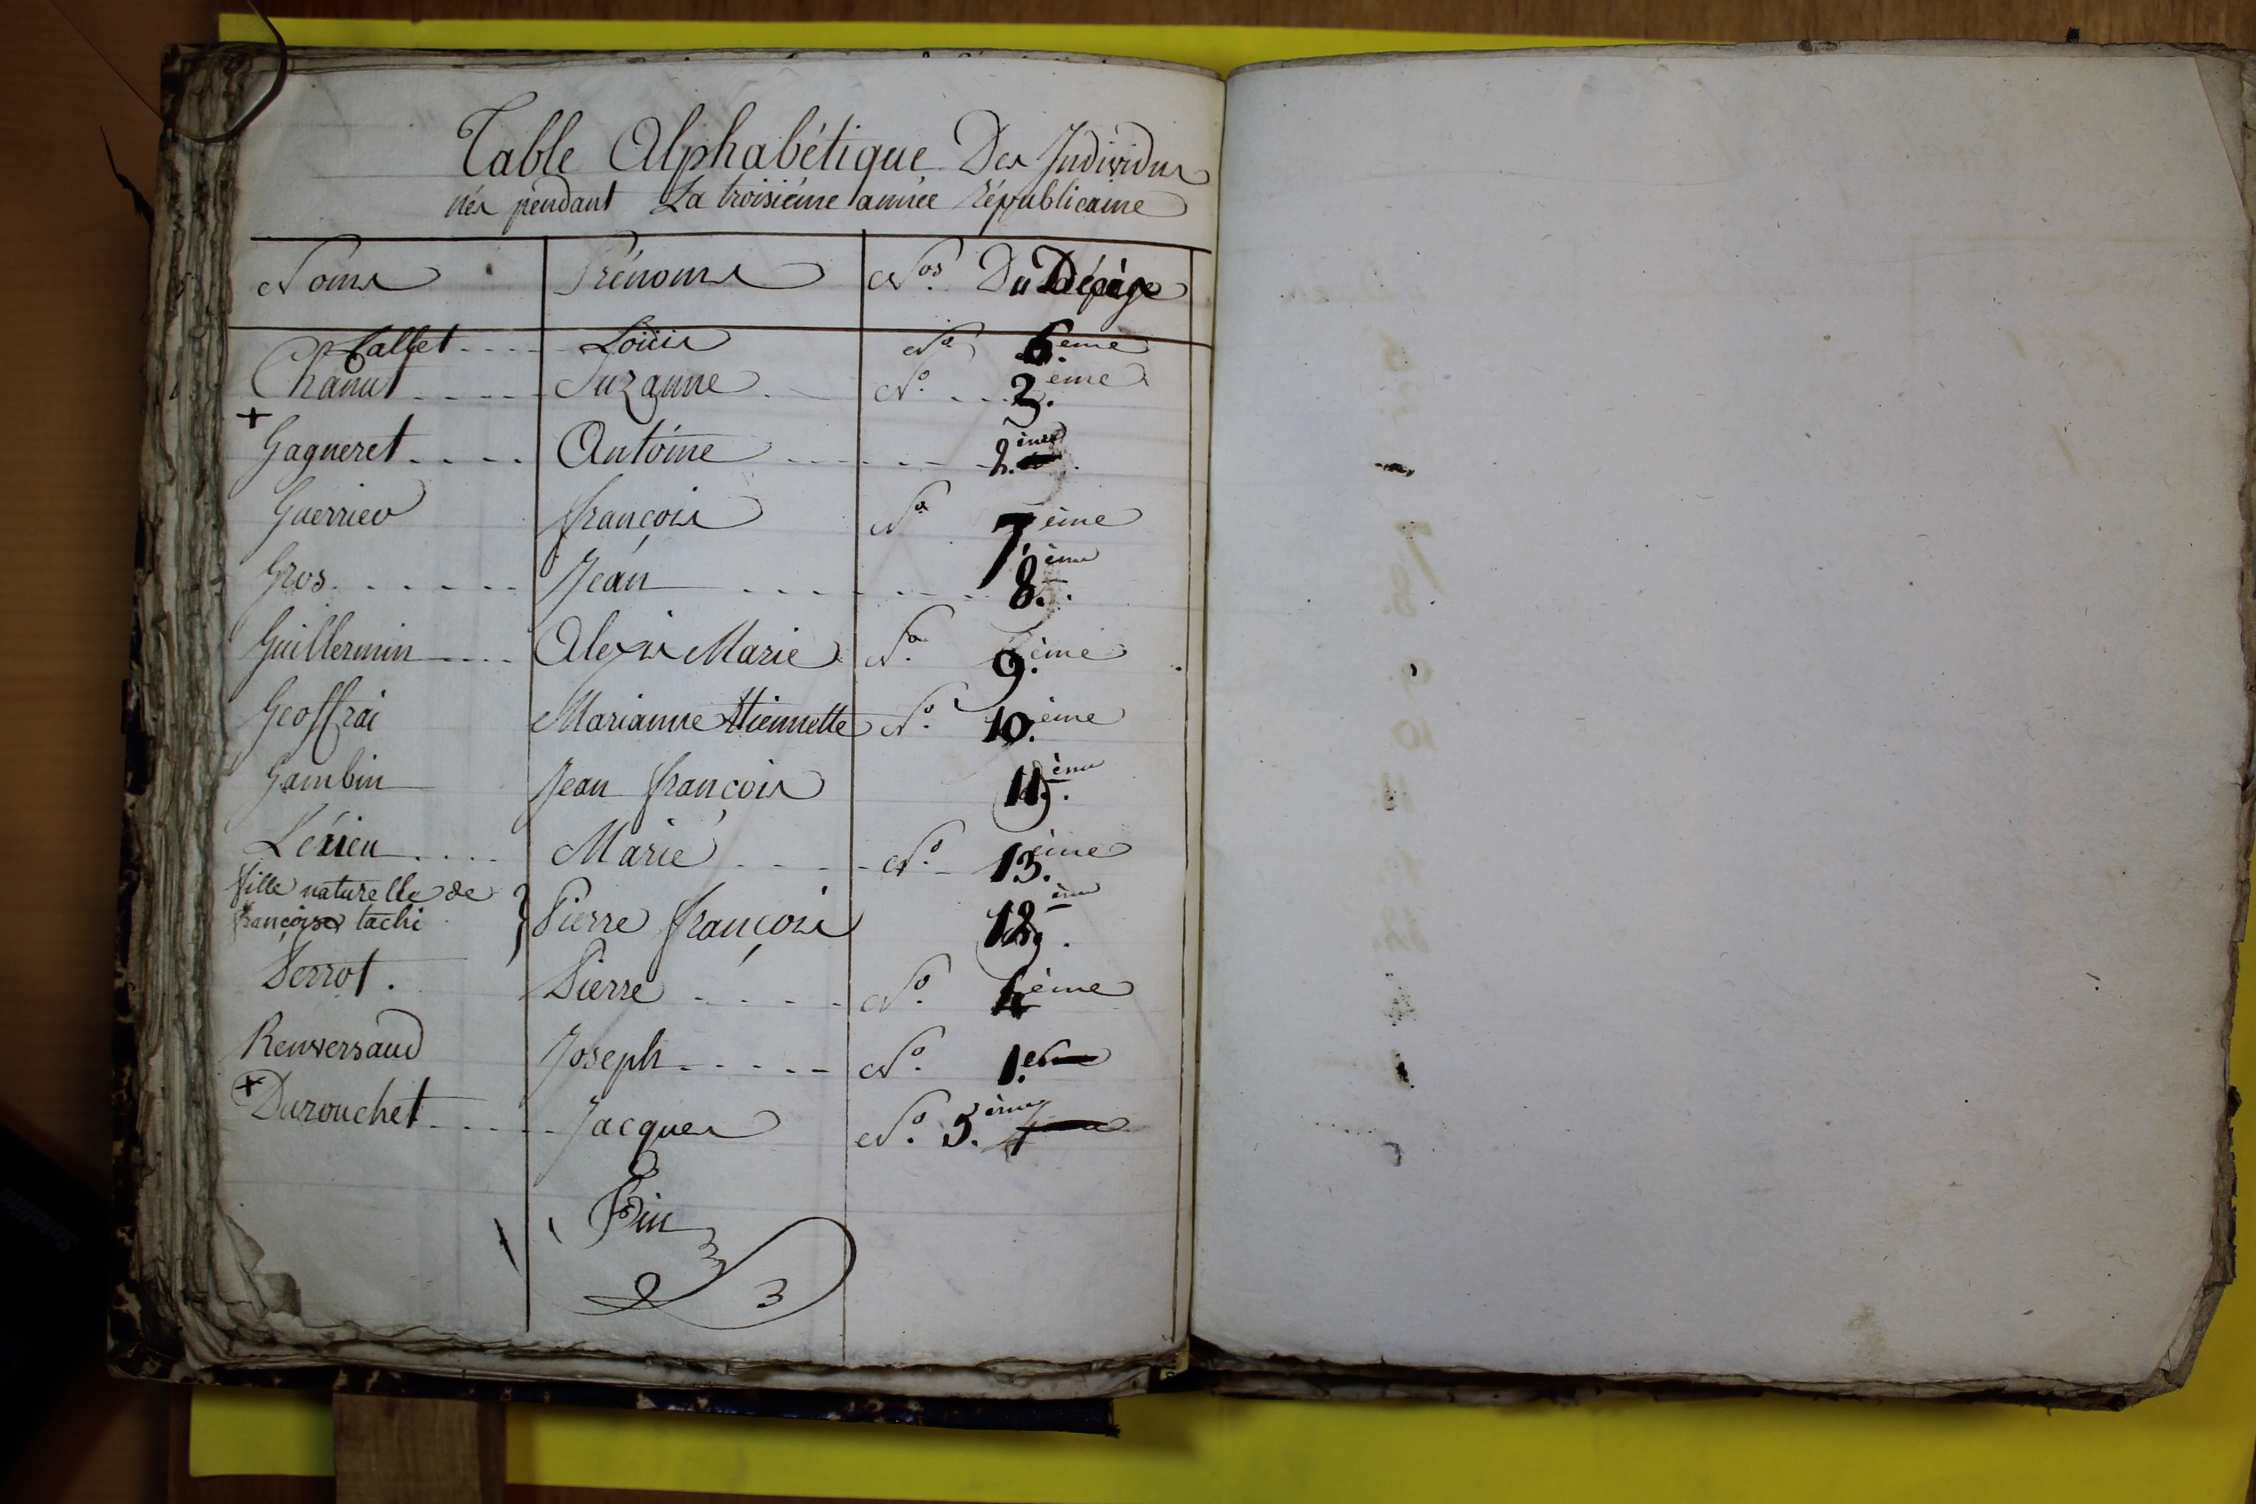 Table Alphabétique Des Individus
nés pendant La troisiéme année républicaine
Noms Prénoms Nos Du
Callet Loüis No 6.eme
Chanut Suzanne No. 3.eme
+
Gagneret Antoine 2.ème
Guerrier françois No 7ème
Gros Jean 8.ème
Guillermin Alexis Marie No. 9.ème
Geoffrai Marianne Etiennette No. 10.ème
Gambin Jean françois 11.ème
Lérieu Marie No. 13.ème
fille naturelle de
françoise tachi } Pierre françois 12.ème
Perrot. Pierre No. 4ème
Renversaud Joseph No. 1.er
+
Durouchet Jacques No. 5.ème
Fin